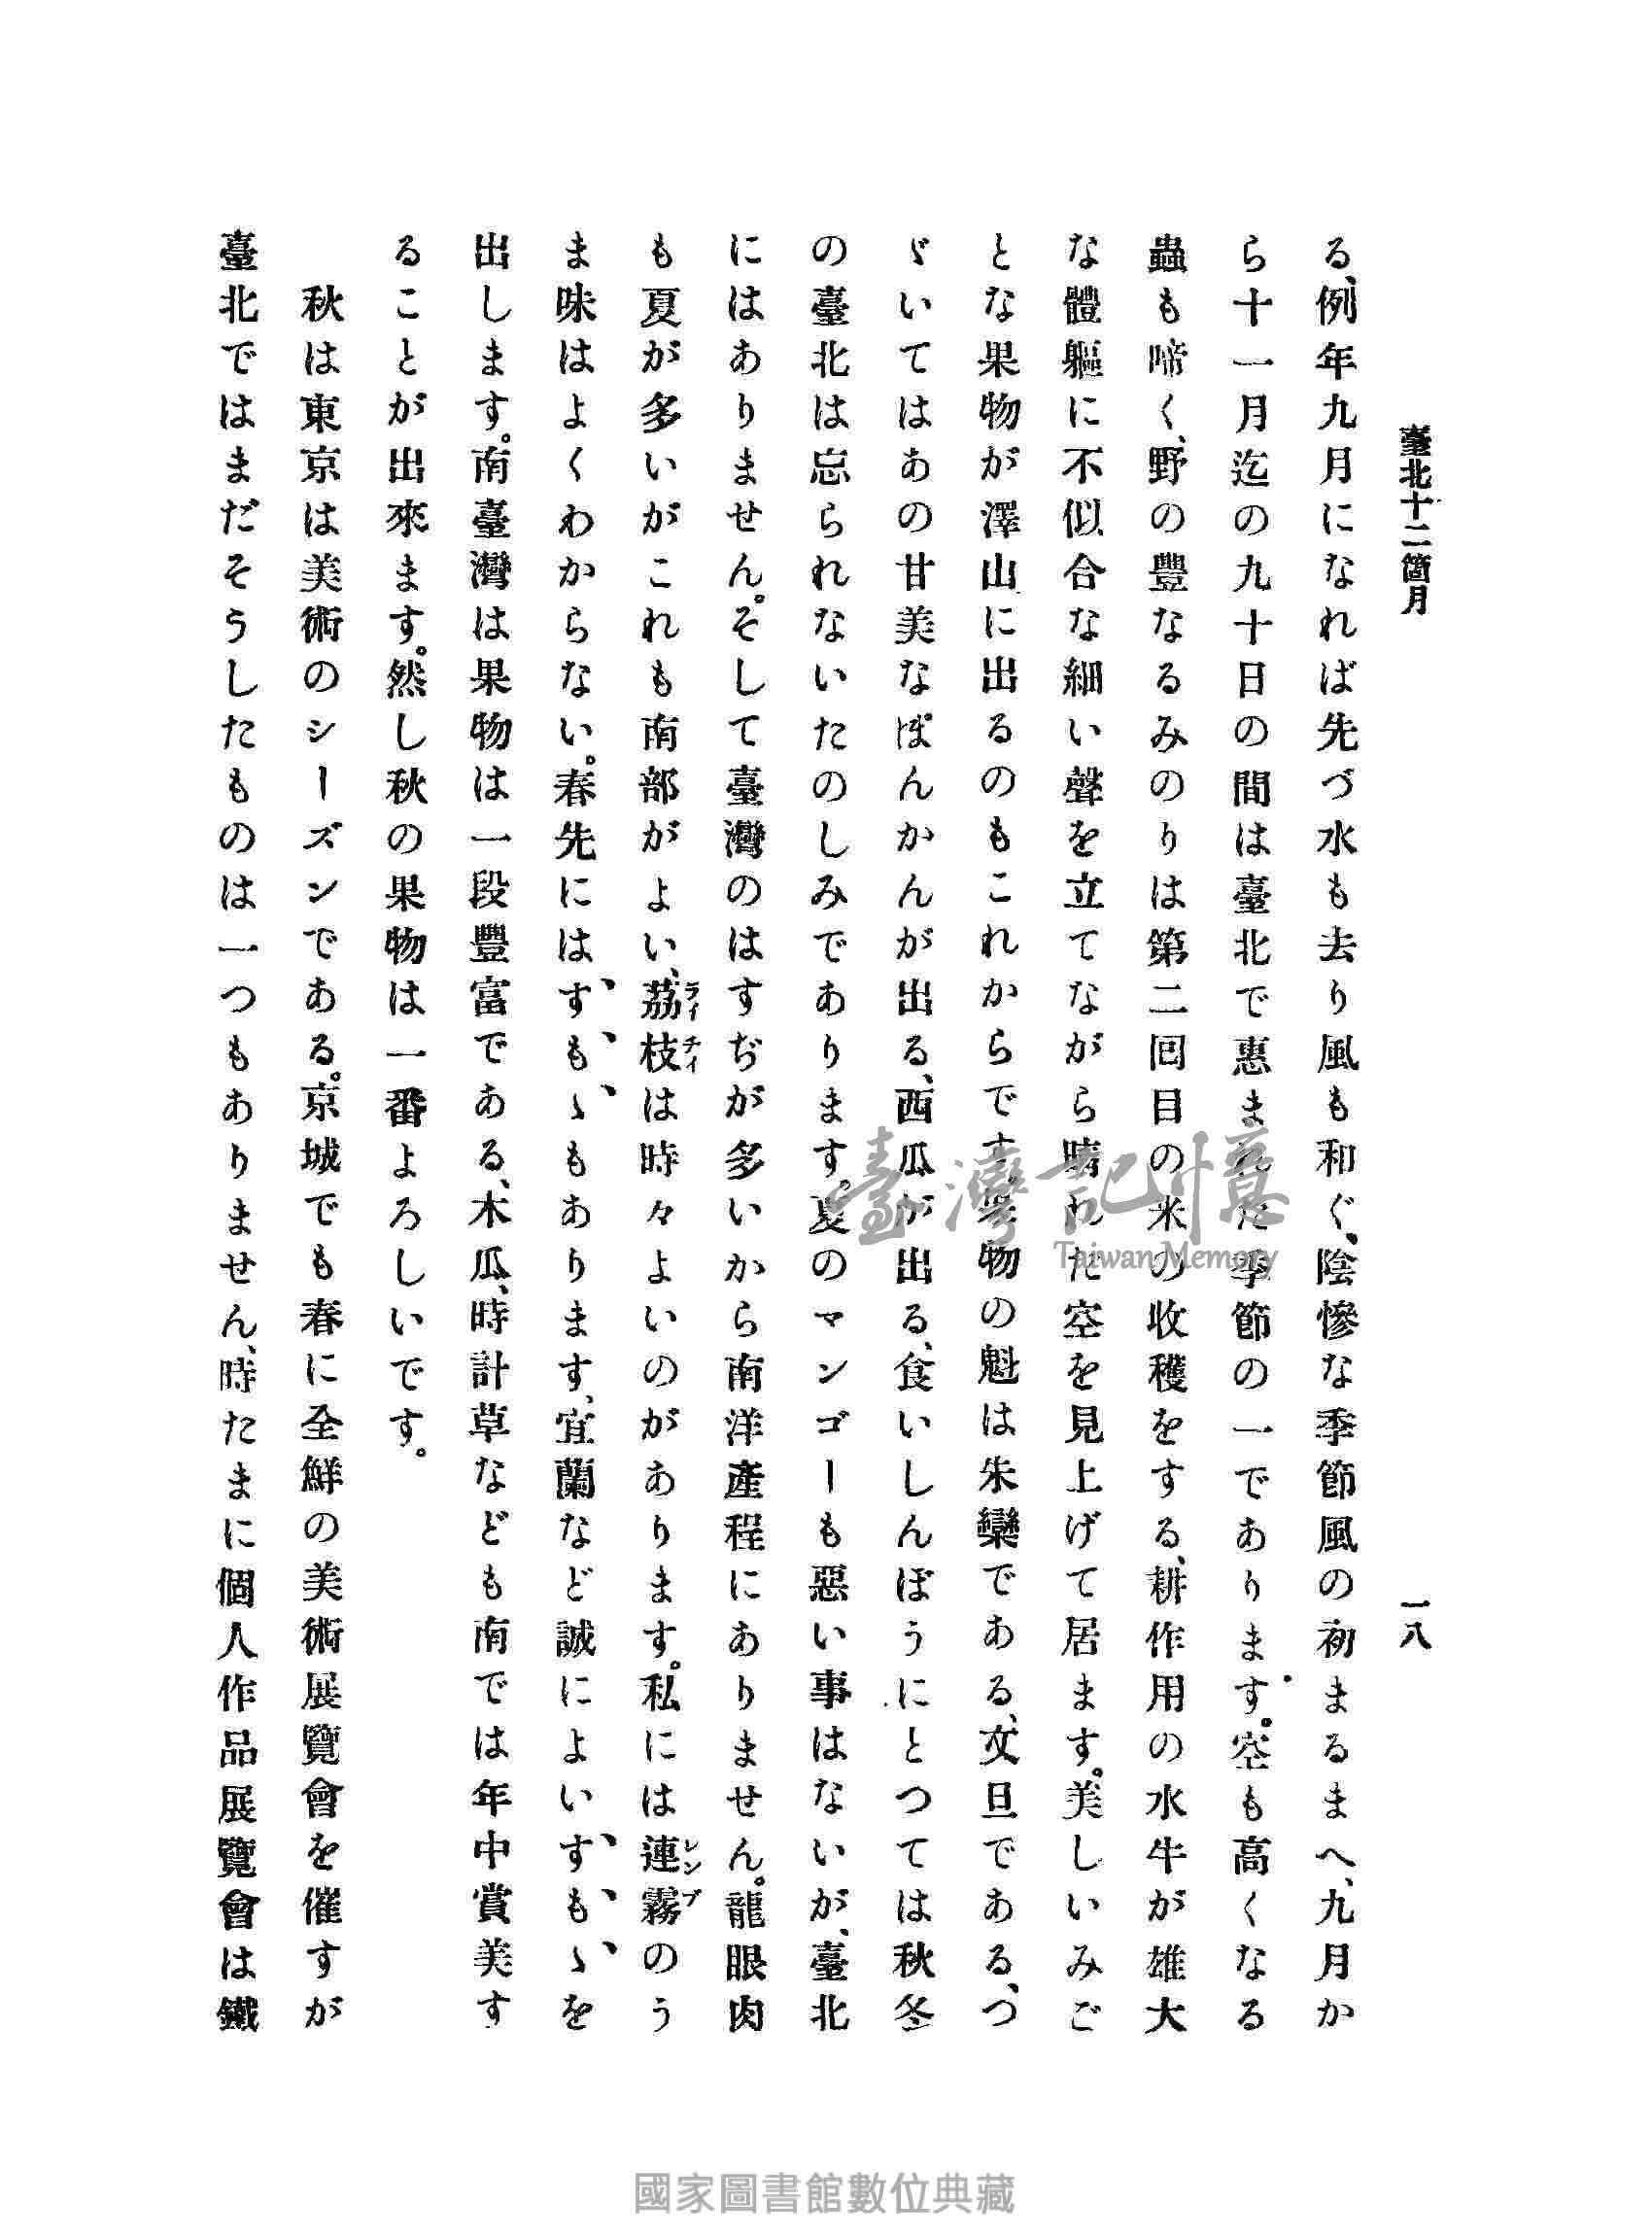 臺北十二箇月
一八
る、例年九月になれば先づ水も去り風も和ぐ、陰慘な季節風の初まるまへ、九月か
ら十一月迄の九十日の間は臺北で惠まれた季節の一であります。空も高くなる
蟲も啼く、野の豐なるみのりは第二回目の米の收穫をする、耕作用の水牛が雄大
な體軀に不似合な細い聲を立てながら晴れた空を見上げて居ます。美しいみご
とな果物が澤山に出るのもこれからです、果物の魁は朱欒である、文旦である、つ
ゞいてはあの甘美なぽんかんが出る、西瓜が出る、食いしんぼうにとつては秋冬
の臺北は忘られないたのしみであります。夏のマンゴーも惡い事はないが、臺北
にはありません。そして臺灣のはすぢが多いから南洋產程にありません。龍眼肉
も夏が多いがこれも南部がよい、荔枝ライチイは時々よいのがあります。私には連霧レンブのう
ま味はよくわからない。春先にはすもゝもあります、宜蘭など誠によいすもゝを
出します。南臺灣は果物は一段豐富である、木瓜、時計草なども南では年中賞美す
ることが出來ます。然し秋の果物は一番よろしいです。
秋は東京は美術のシーズンである。京城でも春に全鮮の美術展覽會を催すが
臺北ではまだそうしたものは一つもありません、時たまに個人作品展覽會は鐵
臺灣記憶
Taiwan Memory
國家圖書館數位典藏